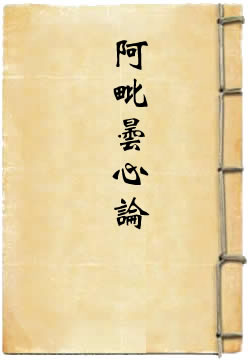 阿毗曇心論